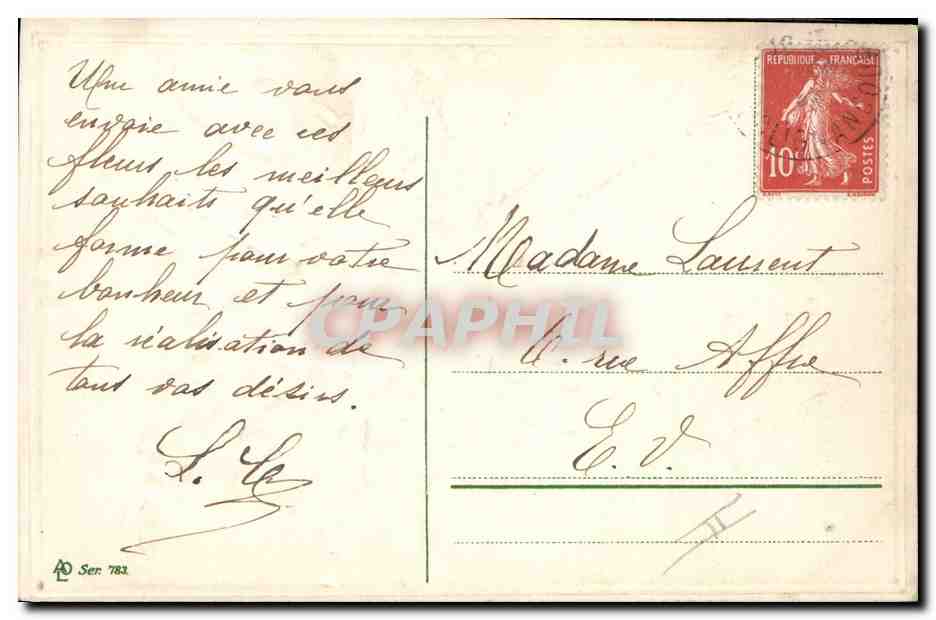 Une amie vous
envoie avec ces
fleurs les meilleurs
souhaits qu'elle
forme pour votre
bonheur et pour
la réalisation de
tous vos désirs.
L.
Ser. 783.
REPUBLIQUE FRANÇAISE
10
POSTES
Madame Laurent
6. rue Affre
E. V.
II
CPAPHIL